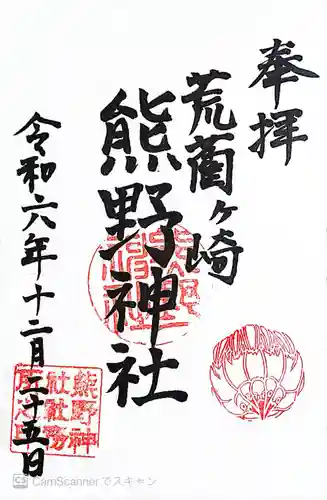 奉拝
荒藺ヶ崎
熊野神社
令和六年十二月二十五日
熊野神
社社務
CamScannerでスキャン